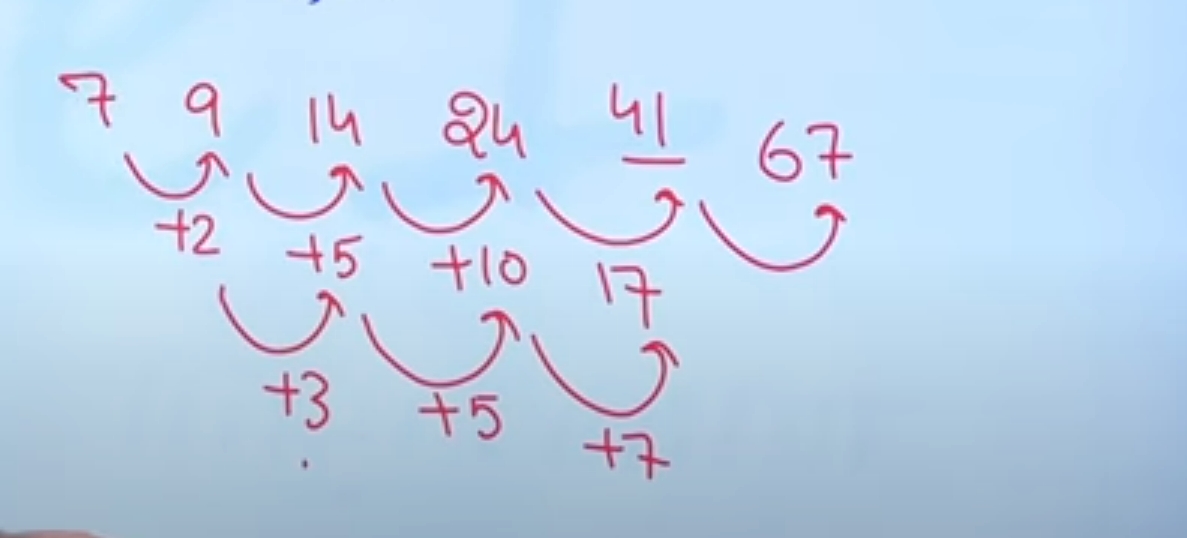 7 9 14 24 41 67
+2 +5 +10 17
+3 +5 +7